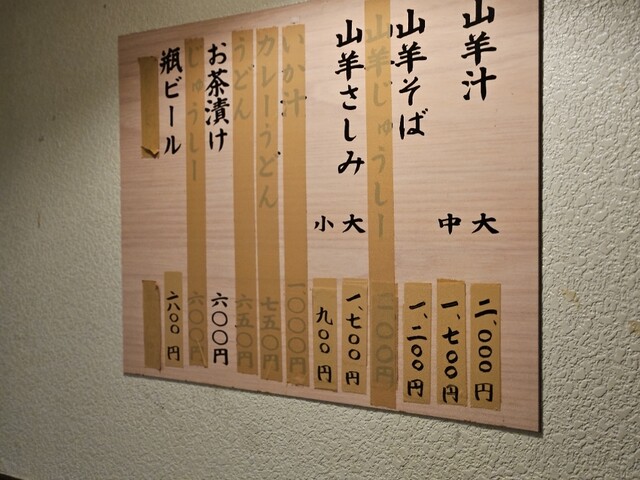 山羊汁 大 二、〇〇〇円
中 一、七〇〇円
山羊そば 一、二〇〇円
山羊じゅうしー
山羊さしみ 大 一、七〇〇円
小 九〇〇円
いか汁 一、〇〇〇円
カレーうどん 七五〇円
うどん 六五〇円
お茶漬け 六〇〇円
じゅうしー 六〇〇円
瓶ビール 六〇〇円